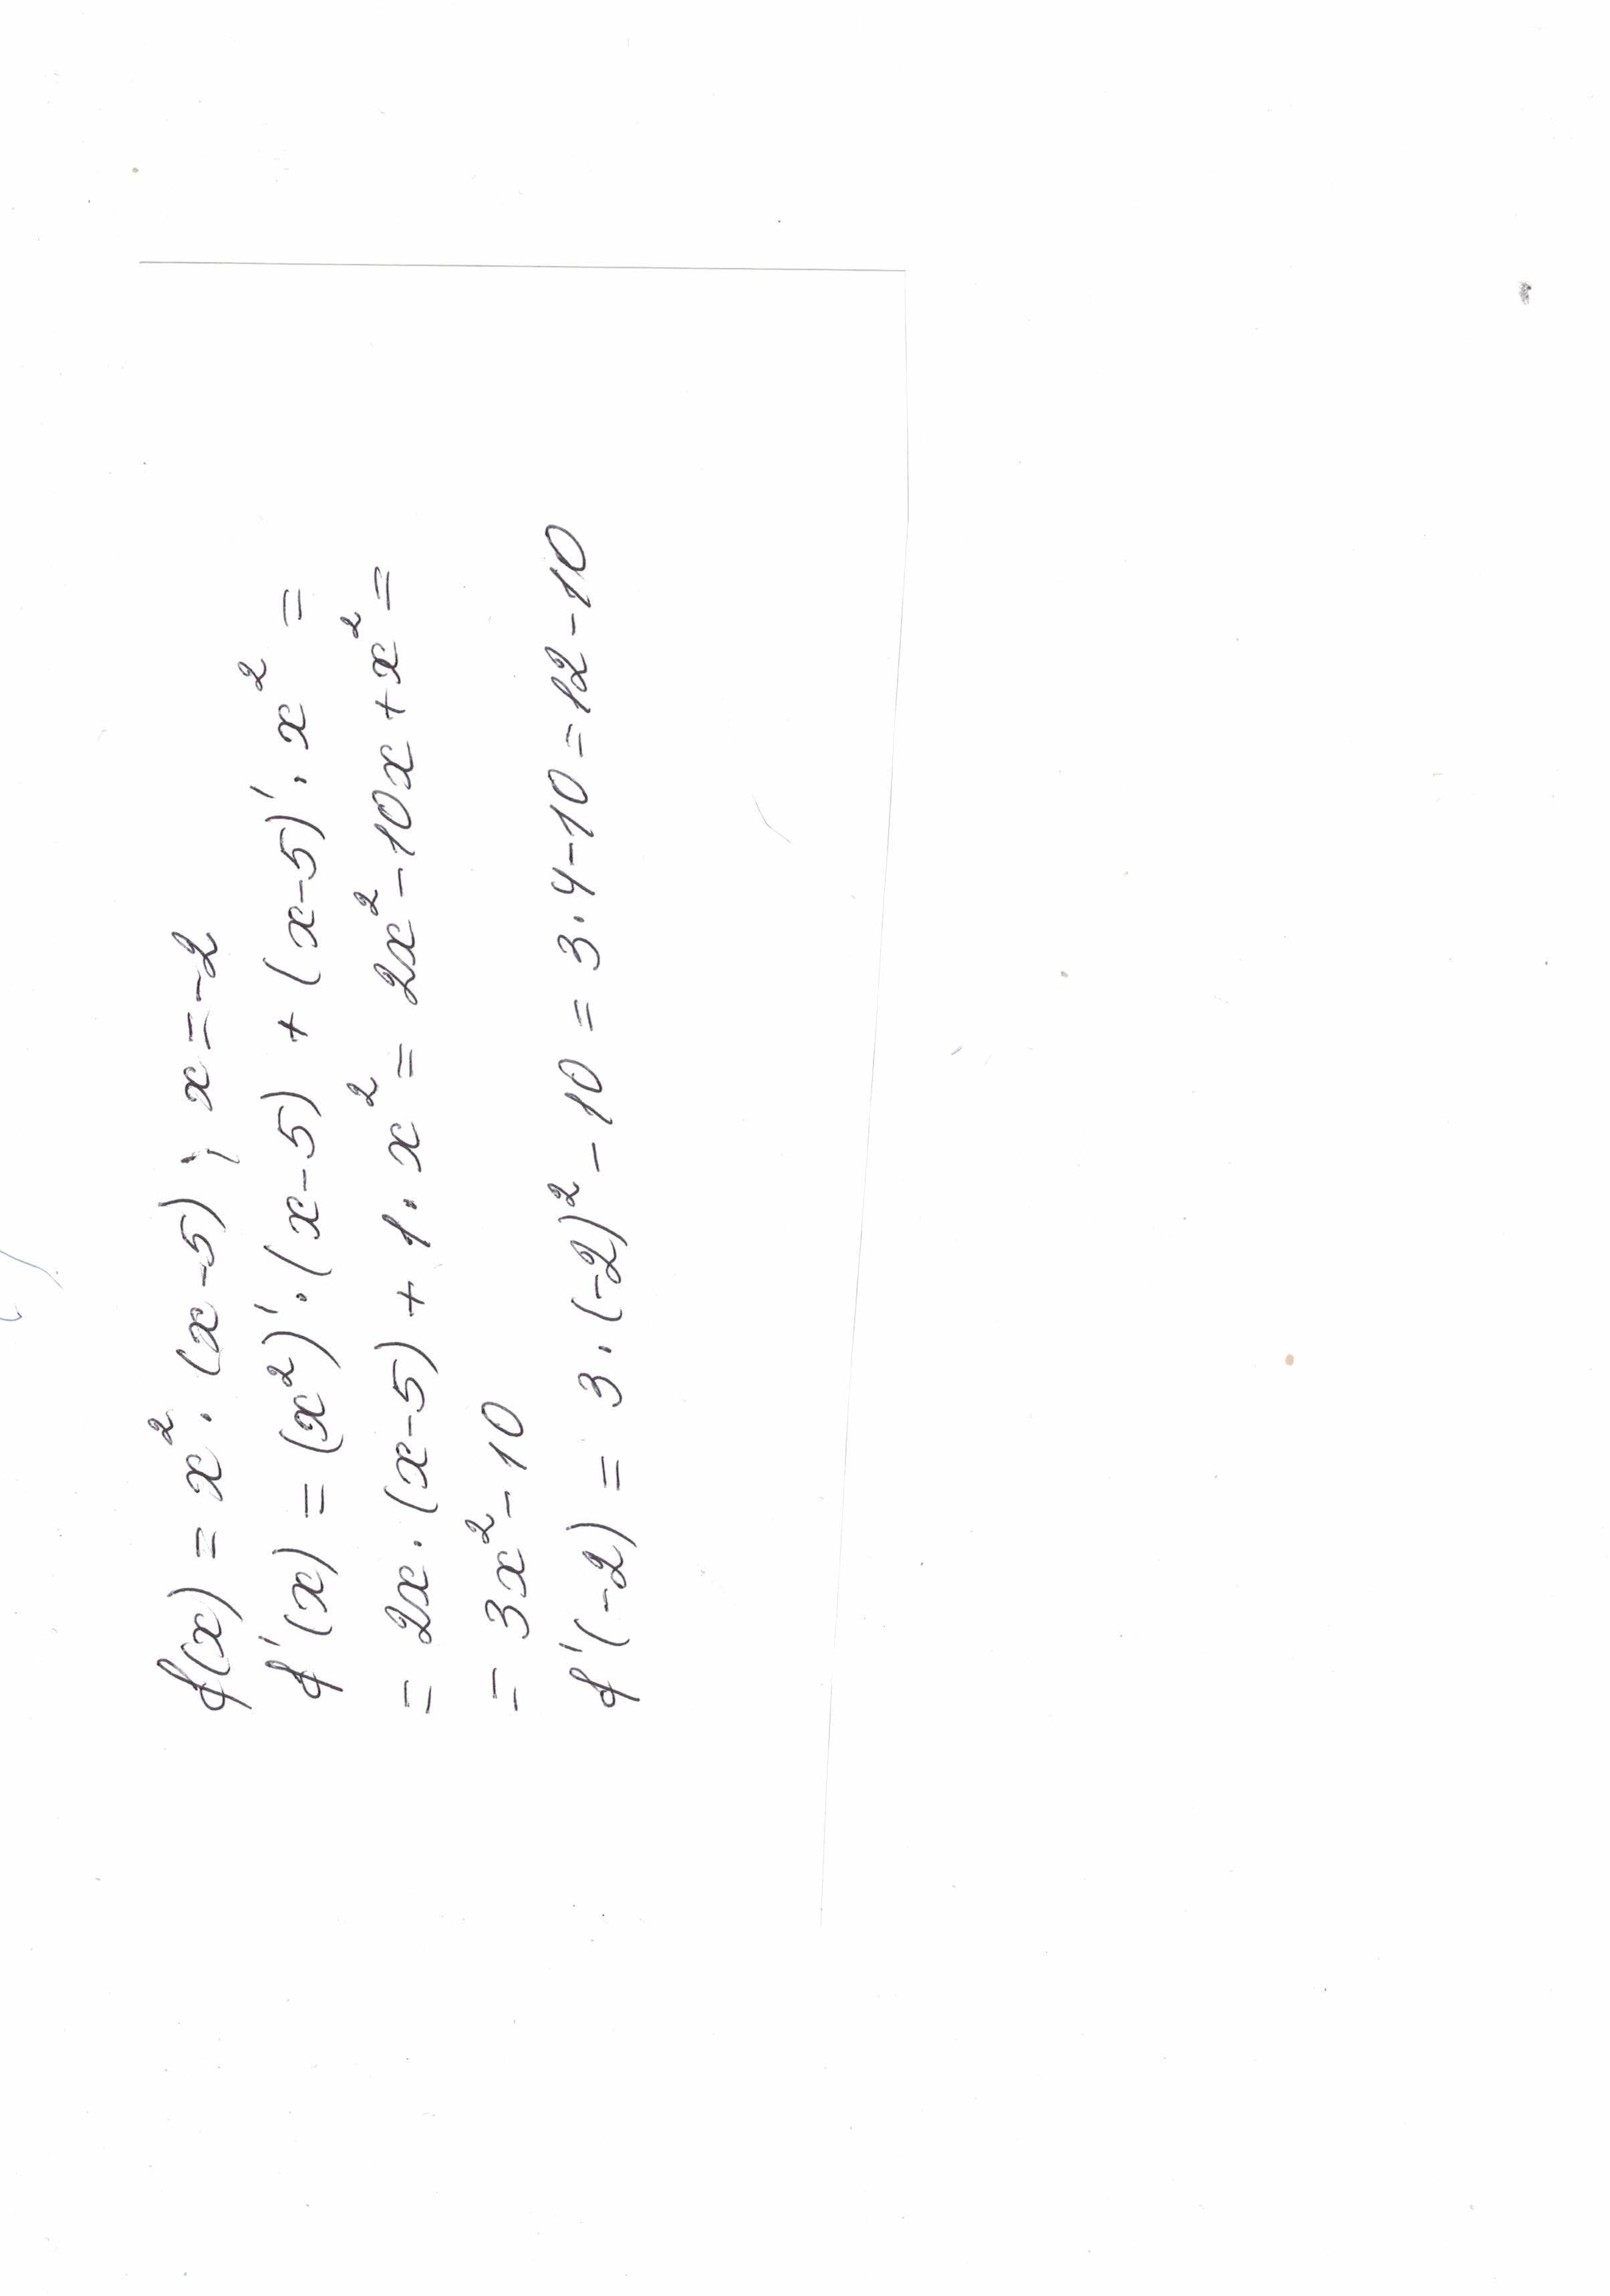 f(x) = x² · (x-5) ; x = -2
f'(x) = (x²)' · (x-5) + (x-5)' · x² =
= 2x · (x-5) + 1 · x² = 2x² - 10x + x² =
= 3x² - 10
f'(-2) = 3 · (-2)² - 10 = 3 · 4 - 10 = 12 - 10